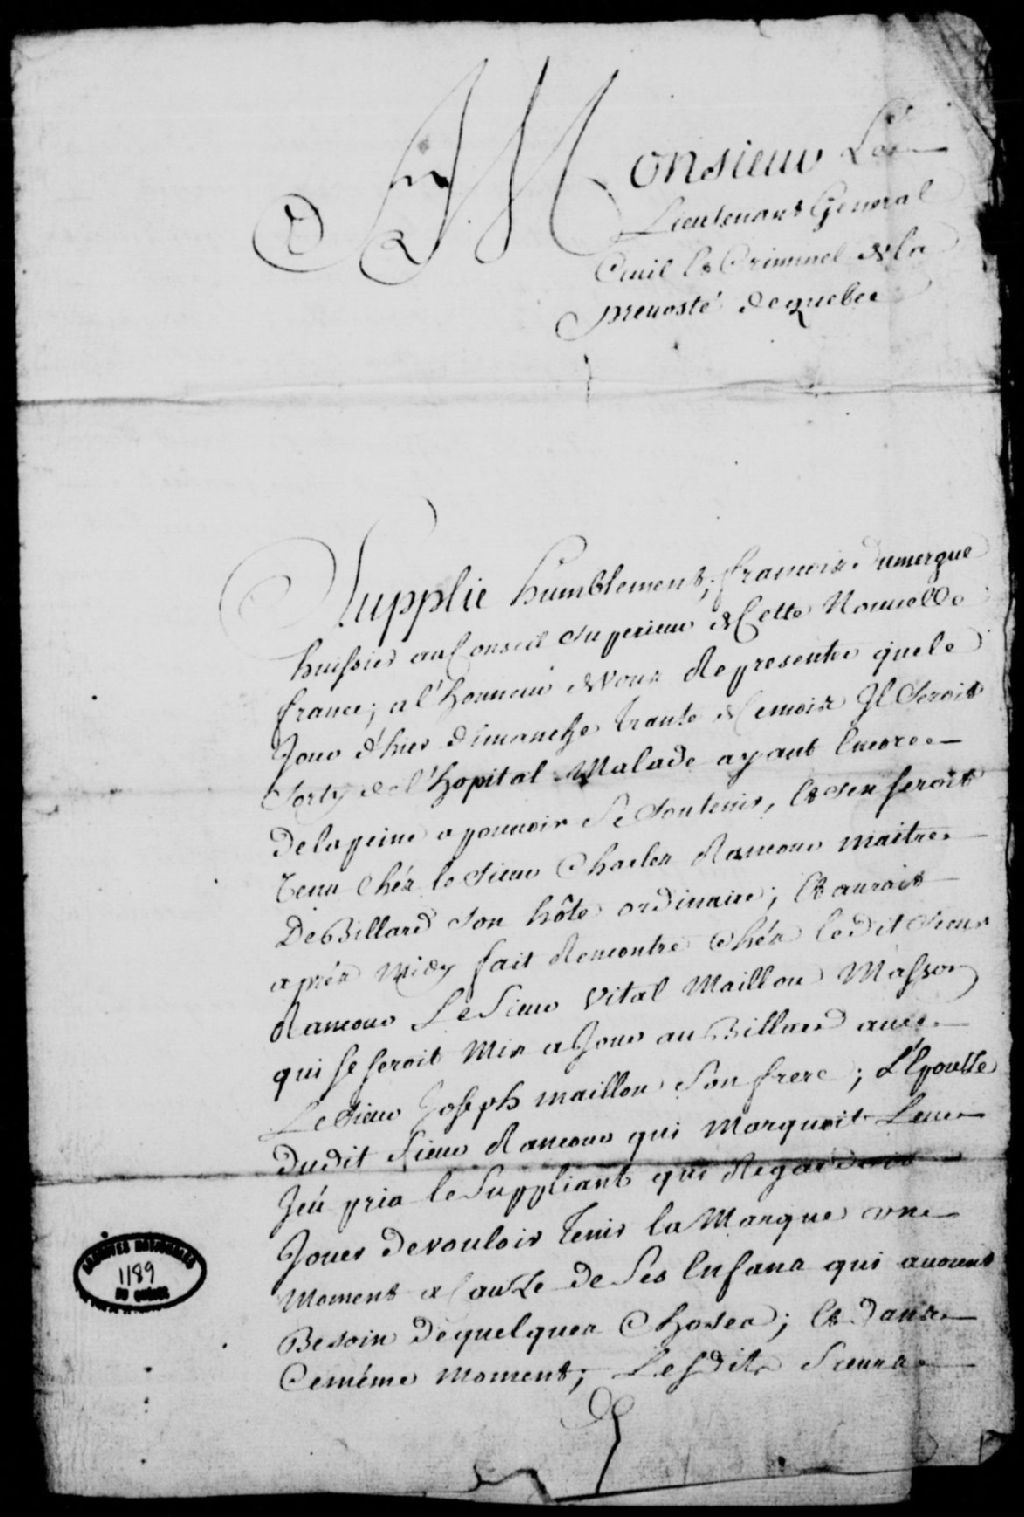 A Monsieur Le
Lieutenant General
Civil & Criminel de la
prevosté de quebec
Supplie humblement, francois Dumergue
huissier au Conseil Superieur de Cette Nouvelle
france; a l'honneur de Vous Representer que le
Jour d'hier dimanche trante de Ce mois Il Seroit
Sorty de l'hopital Malade ayant Encore
De la peine a pouvoir Se Soutenir, & Sen feroit
Venu chéz le Sieur Charles Rancour maitre
De Billard Son hôte ordinaire; & auroit
aprés Midy fait Rencontre Chéz le dit Sieur
Rancour Le Sieur Vital Maillou Masson
qui se seroit Mis a Jouer au Billard avec
Le Sieur Joseph maillou Son frere; L'Epousse
Dudit Sieur Rancour qui Marquoit Leur
Jeü pria le Suppliant qui Regardoit
Jouer de vouloir tenir la Marque un
Moment a Cauze de Ses Enfans qui avoient
Besoin de quelques Choses; & dans
Ce méme Moment, Lesdits Sieurs
ARCHIVES NATIONALES
1189
DU QUÉBEC